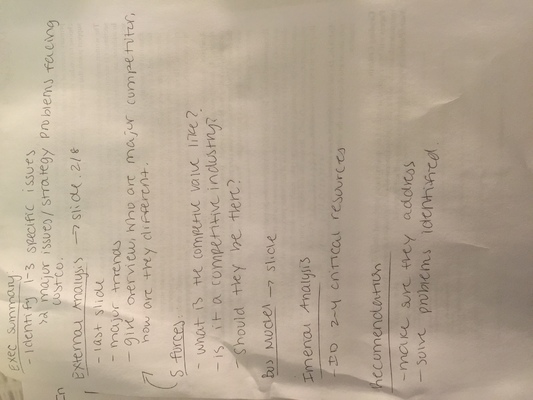 Exec Summary
- Identify 1-3 specific issues
>2 major issues/strategy problems facing
costco.
In
External Analysis → slide 2/8
- last slide
- major trends
- give overview, who are major competitor,
how are they different.
5 forces:
- what is the competive value like?
- is it a competitive industry?
- should they be there?
Bus Model → slide
Internal Analysis
- ID 2-4 critical resources
Reccomendation
- make sure they address
- solve problems identified.